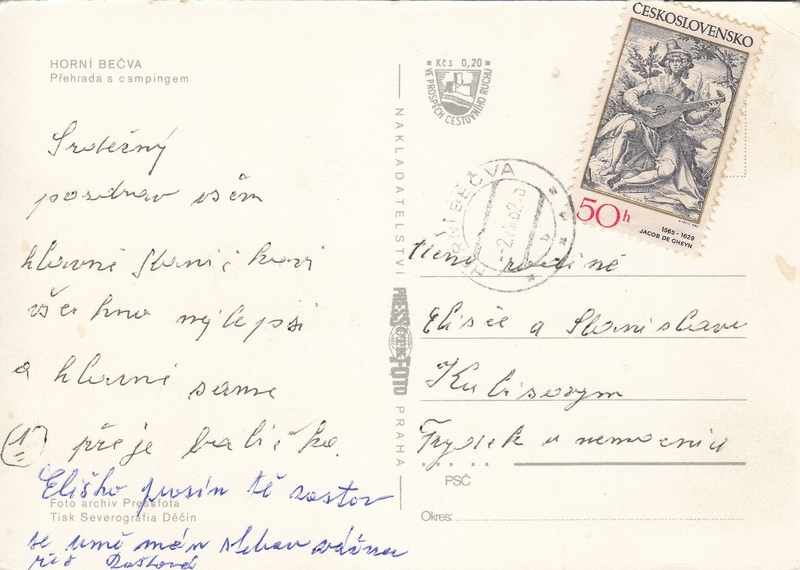 HORNÍ BEČVA
Přehrada s campingem
Srdečný
pozdrav všem
hlavně Staníčkovi
všechno nejlepší
a hlavně same
přeje babička.
Eliško prosín tě zastav
se umě mán slebou vážnu
řeč
Foto archiv Pressfota
Tisk Severografia Děčín
Kčs 0,20
VE PROSPĚCH CESTOVNÍHO RUCHU
NAKLADATELSTVÍ
PRESSFOTO
PRAHA
HORNÍ BEČVA
ČESKOSLOVENSKO
50h
1565 - 1629
JACOB DE GHEYN
rodině
Elišce a Stanislavu
Kubisovým
Frydek u nemocnice
PSČ
Okres: